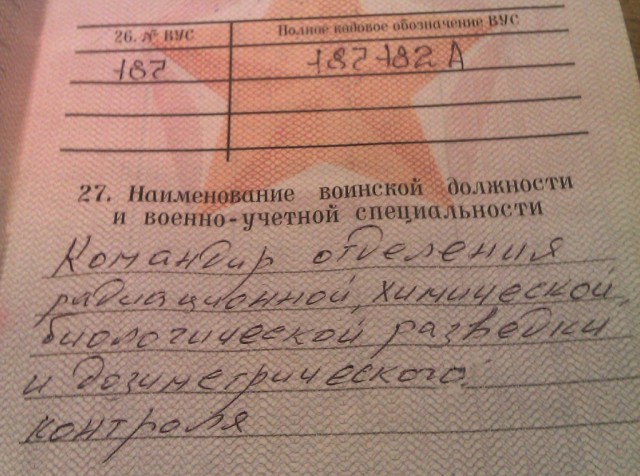 26. № ВУС Полное кодовое обозначение ВУС
187 187182А
27. Наименование воинской должности
и военно-учетной специальности
Командир отделения
радиационной, химической,
биологической разведки
и дозиметрического
контроля